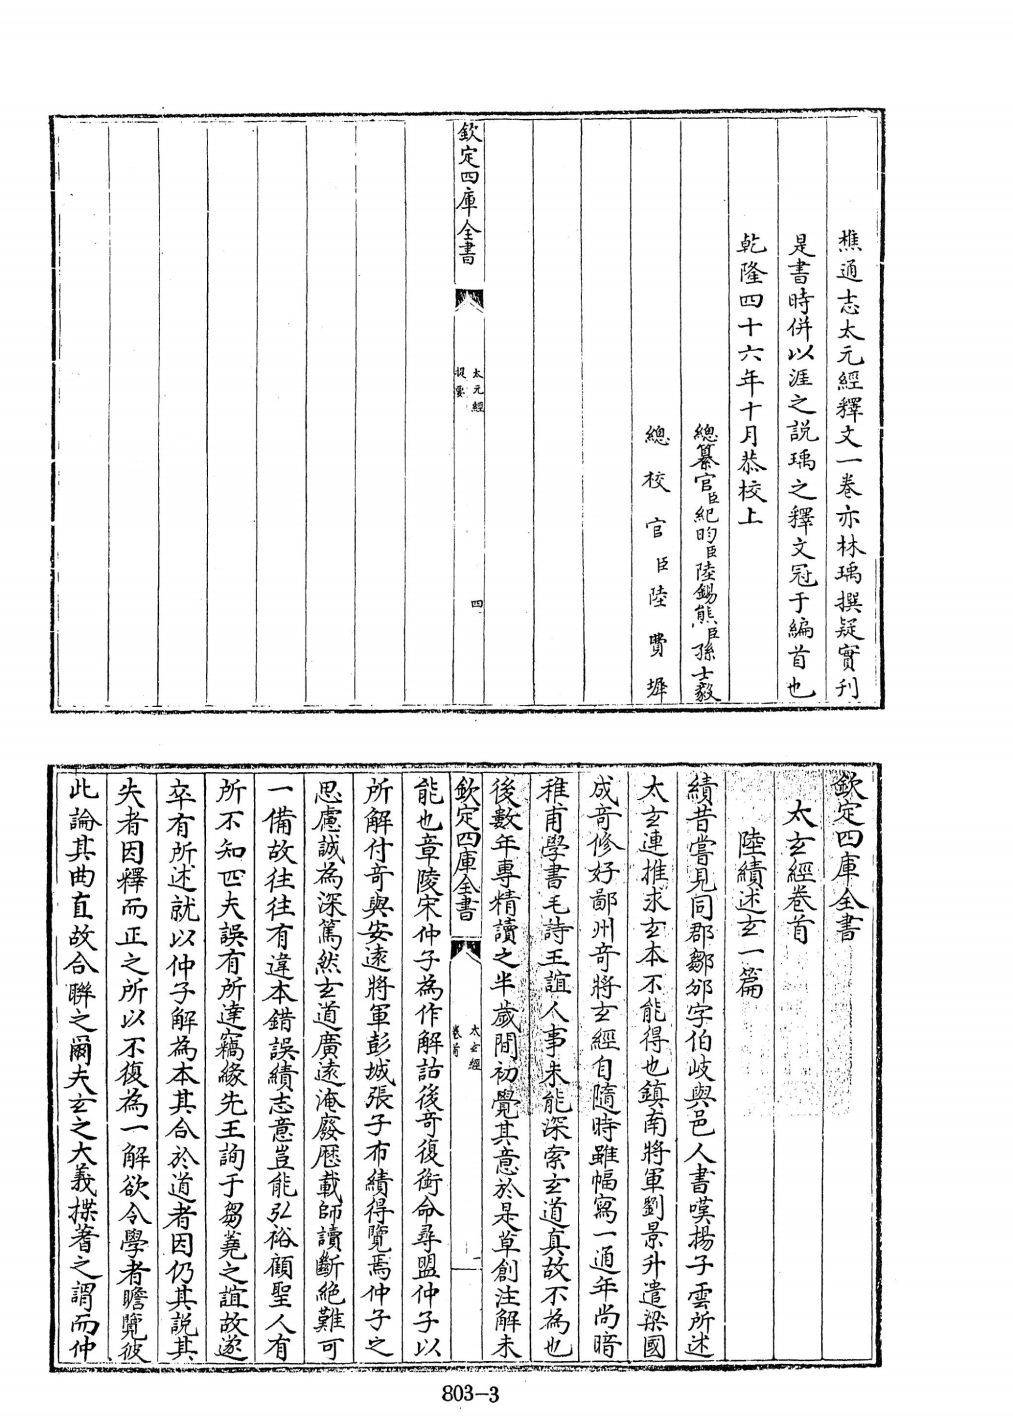 樵通志太元經釋文一卷亦林瑀撰疑實刊
是書時併以涯之説瑀之釋文冠于編首也
乾隆四十六年十月恭校上
總纂官臣紀昀臣陸錫熊臣孫士毅
總校官臣陸費墀
欽定四庫全書
太元經
提要
四
欽定四庫全書
太玄經卷首
陸績述玄一篇
績昔嘗見同郡鄒邠字伯岐與邑人書嘆揚子雲所述
太玄連推求玄本不能得也鎮南將軍劉景升遣梁國
成竒修好鄙州竒將玄經自隨時雖幅寫一通年尚暗
稚甫學書毛詩王誼人事未能深索玄道真故不為也
後數年專精讀之半歲間初覺其意於是草創注解未
欽定四庫全書
太玄經
卷首
一
能也章陵宋仲子為作解詁後竒復銜命尋盟仲子以
所解付竒與安遠將軍彭城張子布績得覽焉仲子之
思慮誠為深篤然玄道廣遠淹廢厯載師讀斷絶難可
一備故往往有違本錯誤績志意豈能弘裕顧聖人有
所不知匹夫誤有所達竊緣先王詢于芻蕘之誼故遂
卒有所述就以仲子解為本其合於道者因仍其説其
失者因釋而正之所以不復為一解欲令學者瞻覽彼
此論其曲直故合聨之爾夫玄之大義揲蓍之謂而仲
803-3